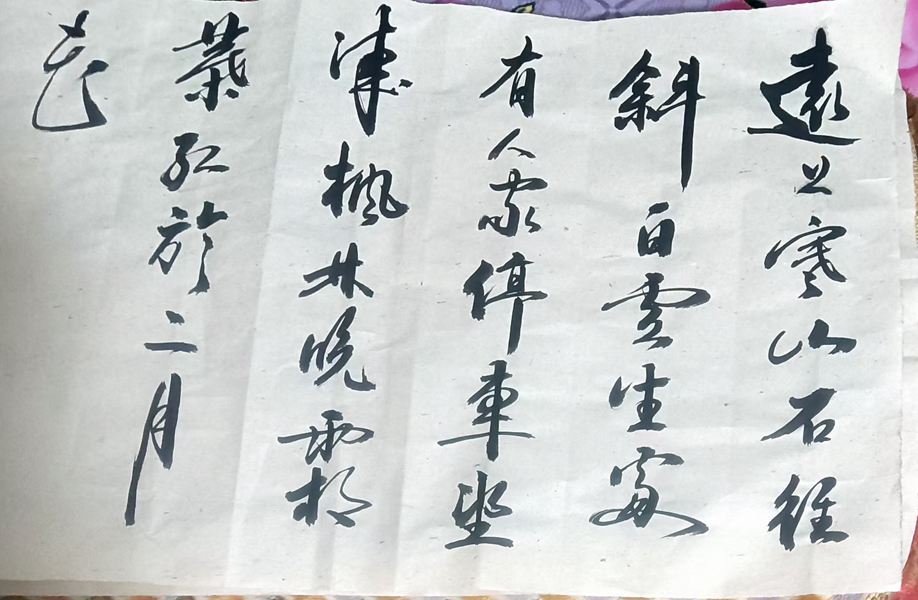 遠上寒山石徑
斜白雲生處
有人家停車坐
愛楓林晚霜
葉紅於二月
花